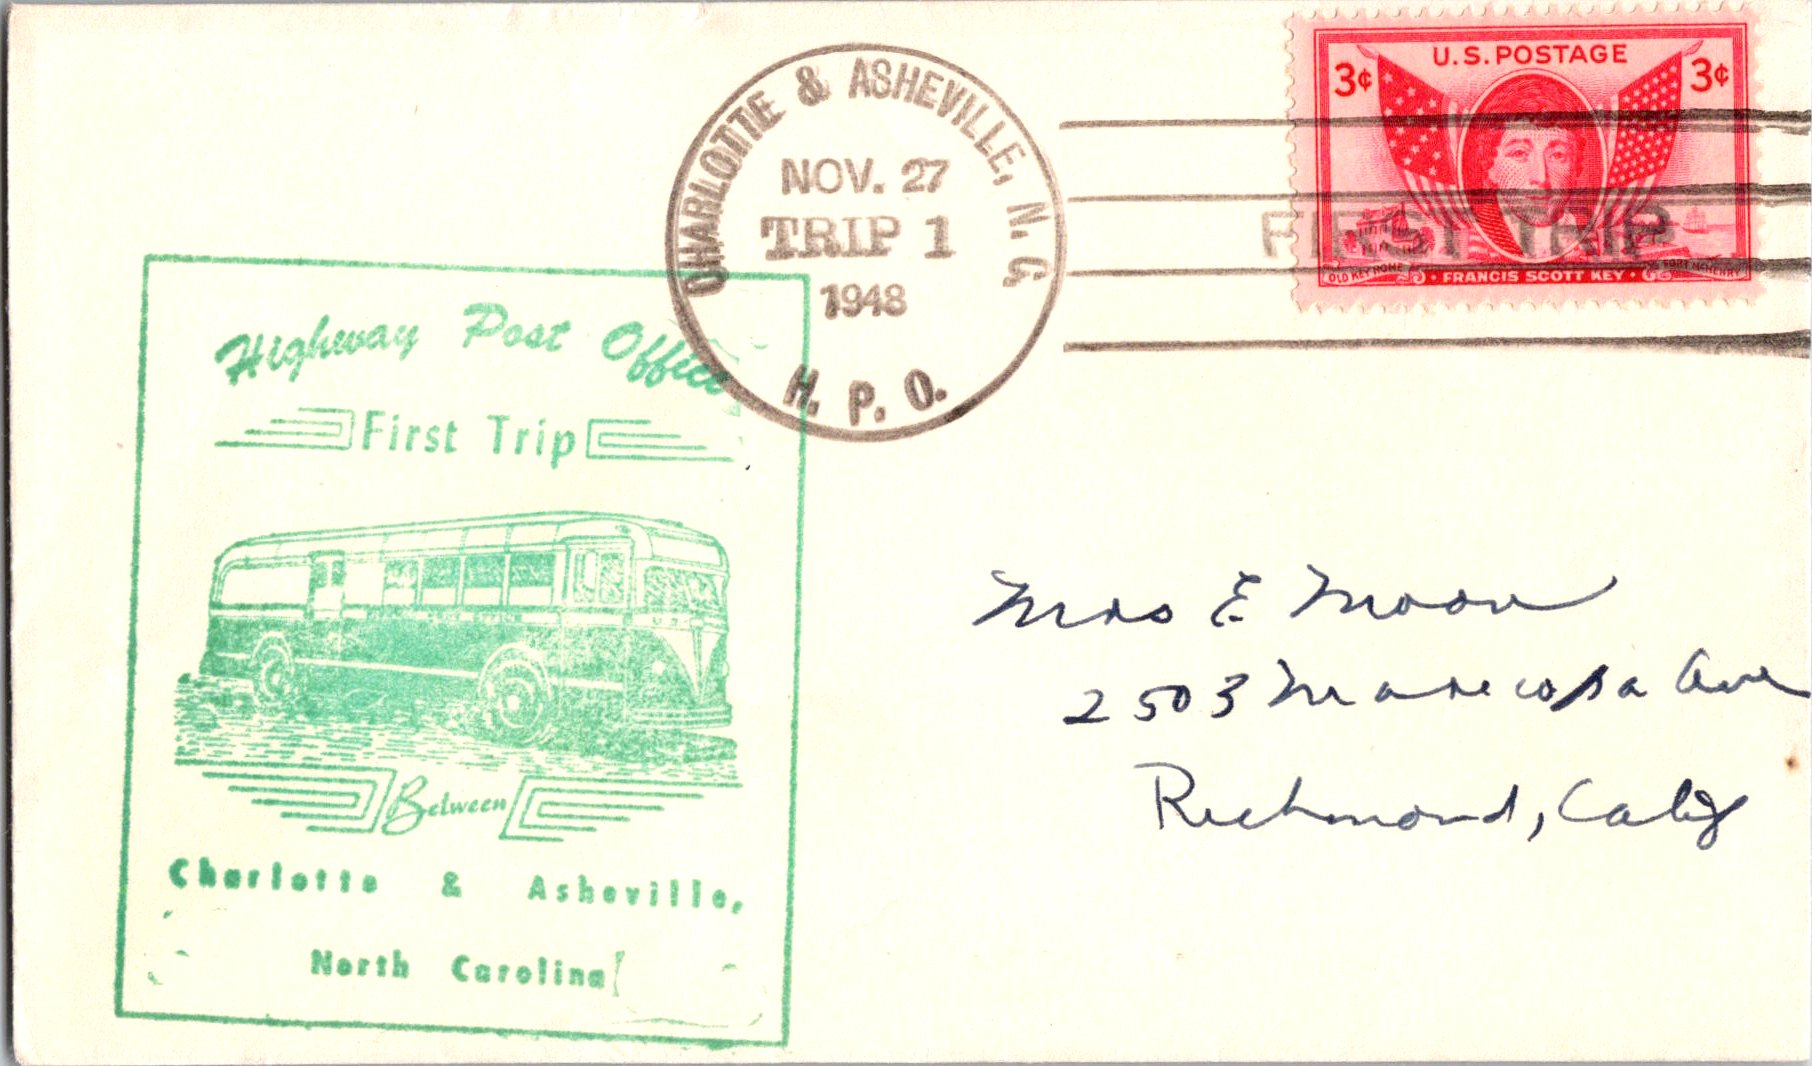 CHARLOTTE & ASHEVILLE, N. C.
NOV. 27
TRIP 1
1948
H. P. O.
U.S. POSTAGE
3¢ 3¢
FIRST TRIP
OLD KEY HOME · FRANCIS SCOTT KEY · FORT McHENRY
Highway Post Office
First Trip
Between
Charlotte & Asheville,
North Carolina
Mrs E. Moon
2503 Maricopa Ave
Richmond, Calif